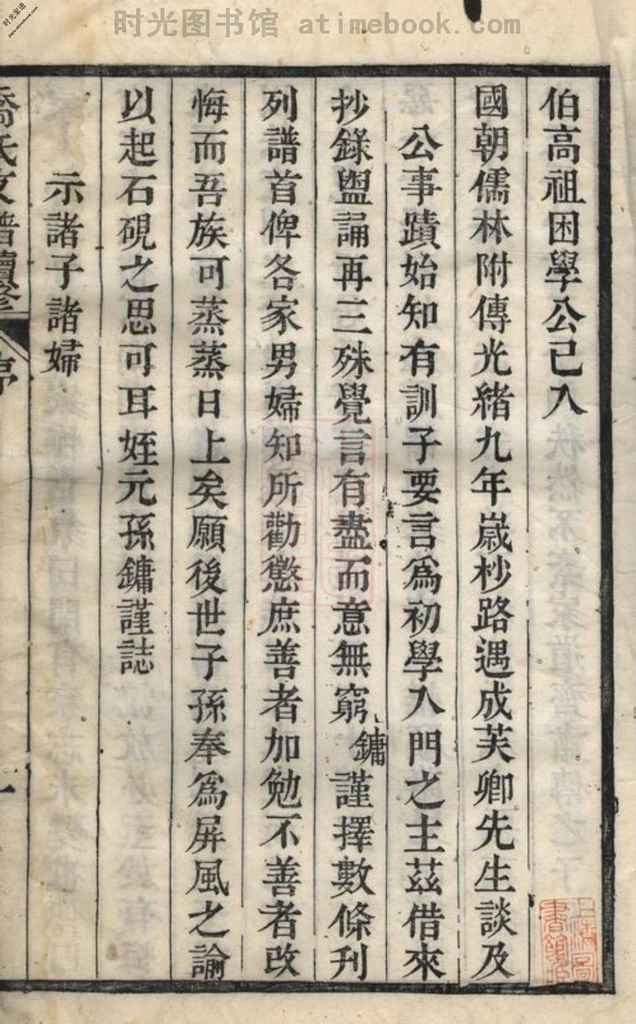 时光图书馆 atimebook.com
伯高祖困學公已入
國朝儒林附傳光緒九年嵗杪路遇成芙卿先生談及
公事蹟始知有訓子要言爲初學入門之主茲借來
抄錄盥誦再三殊覺言有盡而意無窮鏞謹擇數條刊
列譜首俾各家男婦知所勸懲庶善者加勉不善者改
悔而吾族可蒸蒸日上矣願後世子孫奉爲屏風之諭
以起石硯之思可耳姪元孫鏞謹誌
示諸子諸婦
喬氏支譜續修 序 一